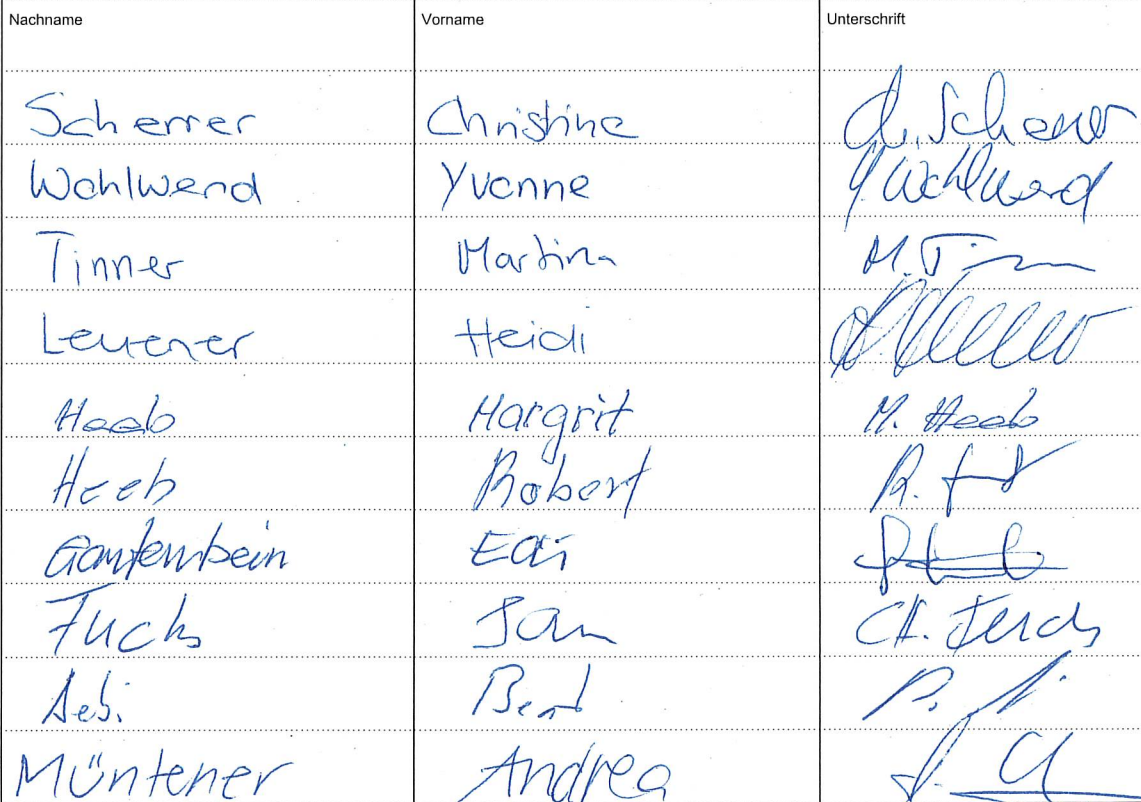 Nachname Vorname Unterschrift
Scherrer Christine Ch. Scherrer
Wohlwend Yvonne Y. Wohlwend
Tinner Martina M. Tinner
Leuener Heidi
Heeb Margrit M. Heeb
Heeb Robert R.
Gantenbein Edi
Fuchs Jan CH. Fuchs
Aebi Beat B.
Müntener Andrea A.